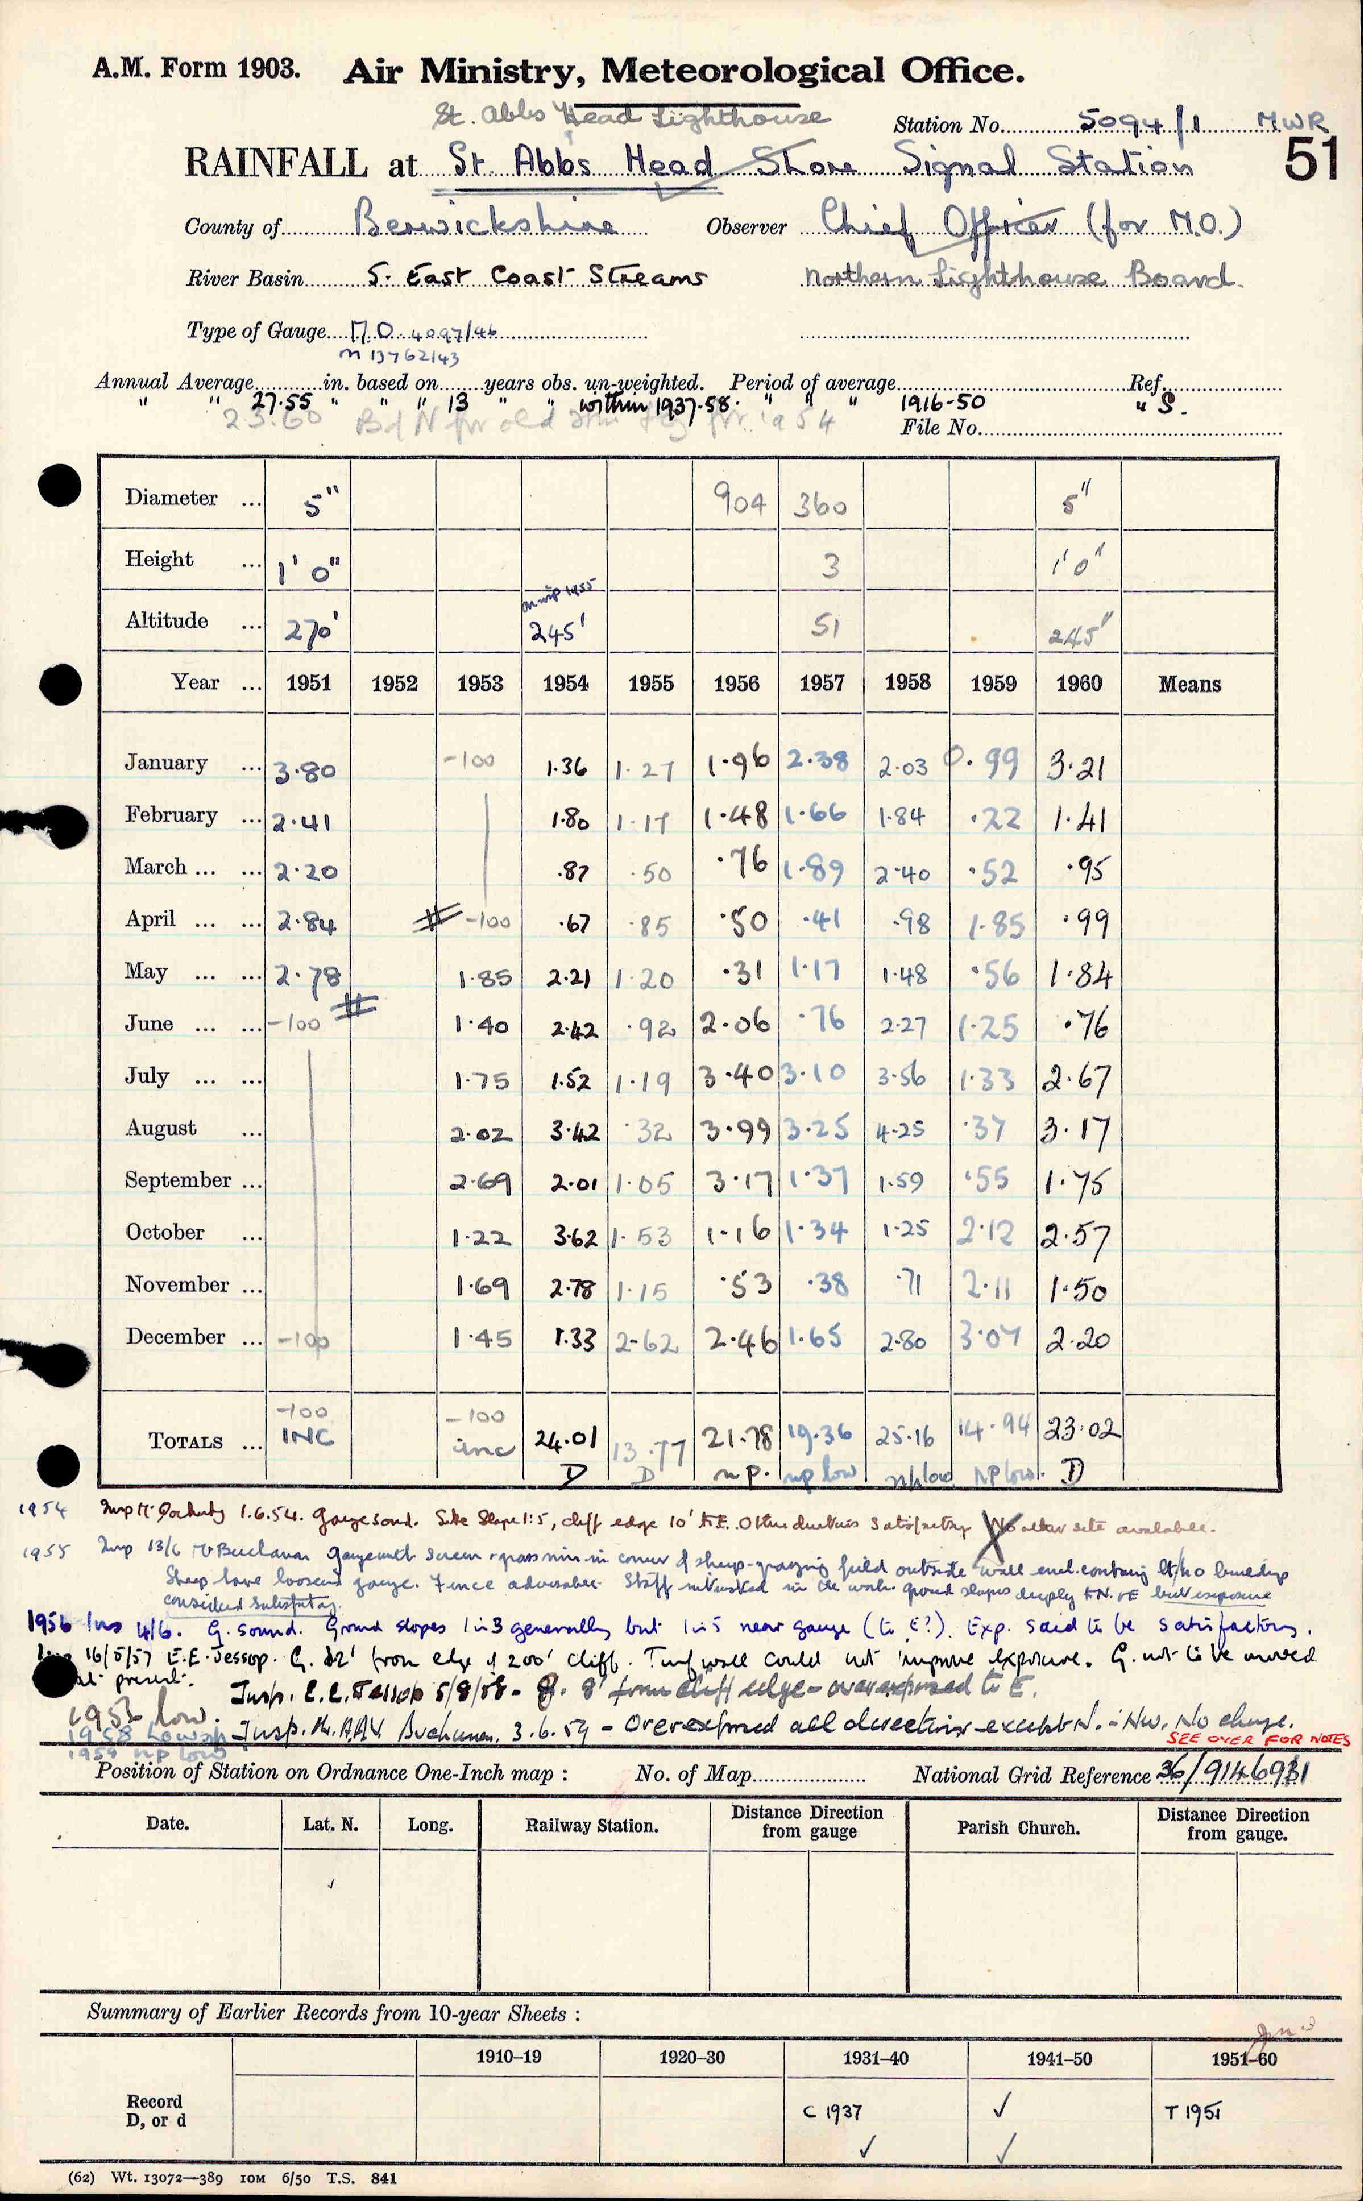 A.M. Form 1903. Air Ministry, Meteorological Office.
St. Abbs Head Lighthouse
Station No. 5094/1 MWR
51
RAINFALL at St. Abbs Head Shore Signal Station
County of Berwickshire Observer Chief Officer (for M.O.)
River Basin 5. East Coast Streams Northern Lighthouse Board.
Type of Gauge M.O. 4097/46
M 13762/43
Annual Average in. based on years obs. un-weighted. Period of average Ref.
" " 27.55 " " " 13 " " within 1937-58. " " " 1916-50 " S.
23.60
File No.
Diameter ... 5" 904 360 5"
Height ... 1' 0" 3 1' 0"
Altitude ... 270' 245' 51 245"
Year ... 1951 1952 1953 1954 1955 1956 1957 1958 1959 1960 Means
January ... 3.80 -100 1.36 1.27 1.96 2.38 2.03 0.99 3.21
February ... 2.41 1.80 1.17 1.48 1.66 1.84 .22 1.41
March ... ... 2.20 .87 .50 .76 1.89 2.40 .52 .95
April ... ... 2.84 -100 .67 .85 .50 .41 .98 1.85 .99
May ... ... 2.78 1.85 2.21 1.20 .31 1.17 1.48 .56 1.84
June ... ... -100 1.40 2.42 .92 2.06 .76 2.27 1.25 .76
July ... ... 1.75 1.52 1.19 3.40 3.10 3.56 1.33 2.67
August ... 2.02 3.42 .32 3.99 3.25 4.25 .37 3.17
September ... 2.69 2.01 1.05 3.17 1.37 1.59 .55 1.75
October ... 1.22 3.62 1.53 1.16 1.34 1.25 2.12 2.57
November ... 1.69 2.78 1.15 .53 .38 .71 2.11 1.50
December ... -100 1.45 1.33 2.62 2.46 1.65 2.80 3.07 2.20
-100 -100
TOTALS ... INC inc 24.01 13.77 21.78 19.36 25.16 14.94 23.02
D D n p. np low np low NP low. D
1954 Insp 1.6.54. Gauge sound. Site Slope 1:5, cliff edge 10' Other directions satisfactory No other site available.
1955 Insp 13/6 Mr Buchanan Gauge with screen + grass min in corner of sheep-grazing field outside wall
Sheep have loosened gauge. Fence advisable. Staff instructed in ground slopes but exposure
considered satisfactory.
1956 Ins 4/6. G. sound. Ground slopes 1 in 3 generally but 1 in 5 near gauge (to E?). Exp. said to be satisfactory.
16/5/57 E.E. Jessop. G. 12' from edge of 200' cliff. Turf wall could not improve exposure. G. not to be moved
at present.
Insp. E.E. Jessop 5/8/58 - G. 8' from cliff edge - overexposed to E.
1956 low.
1958 low
Insp. Mr. Buchanan. 3.6.59 - Overexposed all directions except N. - NW. No change.
SEE OVER FOR NOTES
1959 np low
Position of Station on Ordnance One-Inch map : No. of Map National Grid Reference 36/914691
Date. Lat. N. Long. Railway Station. Distance Direction from gauge Parish Church. Distance Direction from gauge.
Summary of Earlier Records from 10-year Sheets :
1910–19 1920–30 1931–40 1941–50 1951–60
Record
D, or d C 1937 ✓ T 1951
✓ ✓
(62) Wt. 13072—389 IOM 6/50 T.S. 841